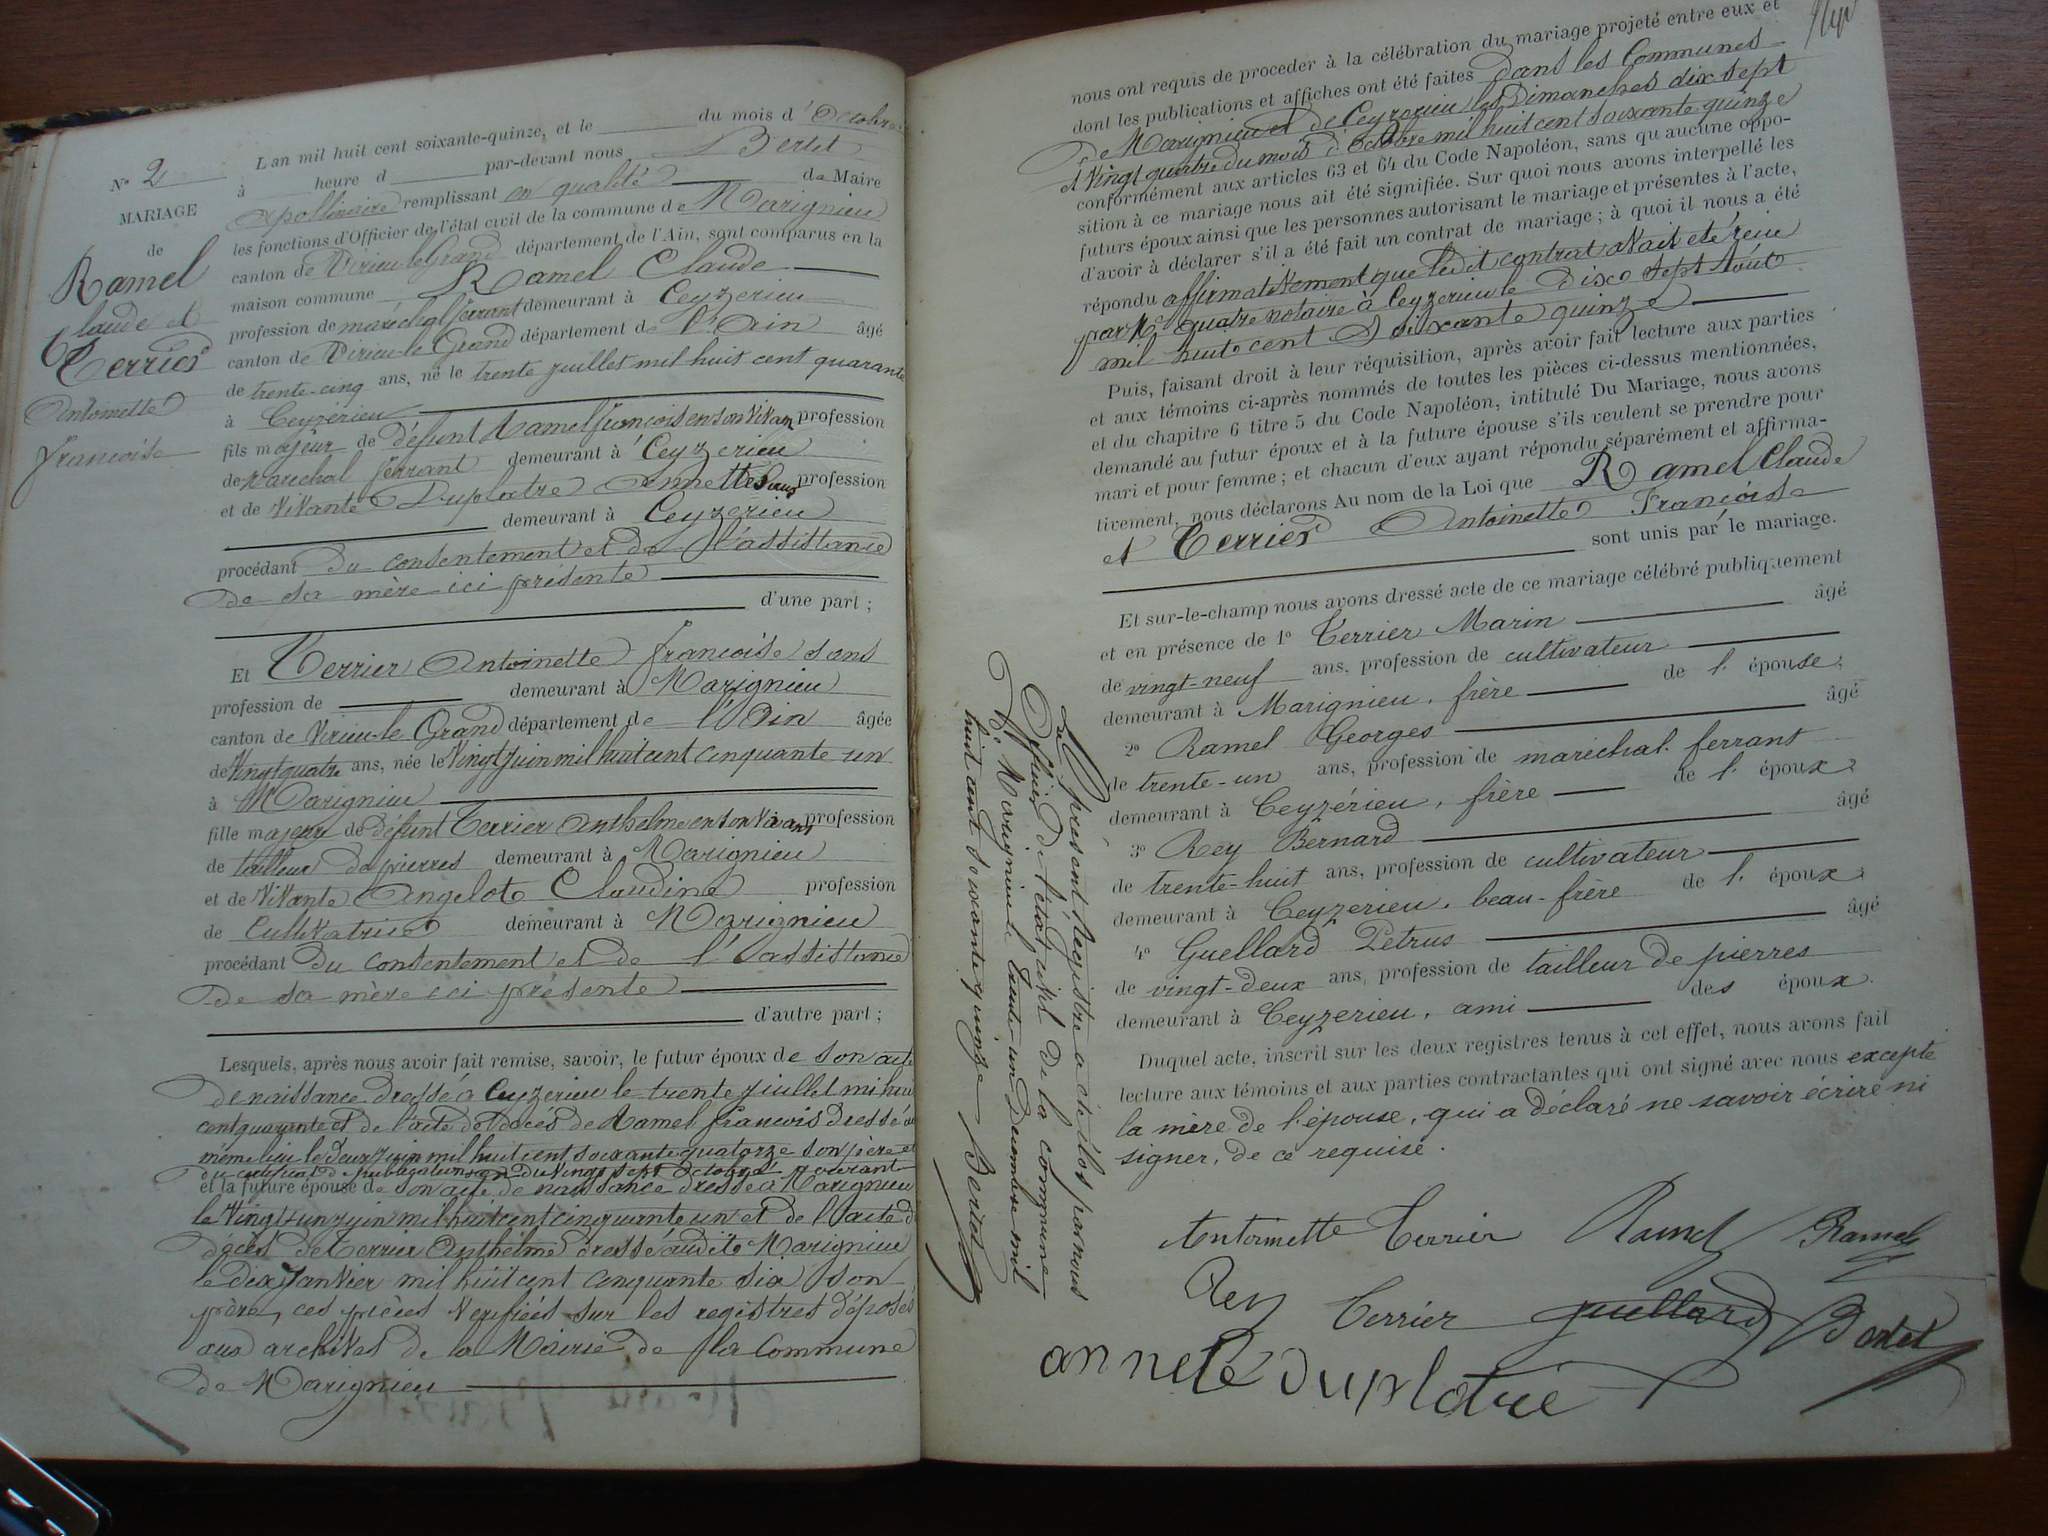 N° 2
MARIAGE
de
Ramel
Claude et
Terrier
Antoinette
françoise
L'an mil huit cent soixante-quinze, et le du mois d'Octobre
à heure d par-devant nous Bertet
Apollinaire remplissant en qualité de Maire
les fonctions d'Officier de l'état civil de la commune de Marignieu
canton de Virieu-le-Grand département de l'Ain, sont comparus en la
maison commune Ramel Claude
profession de maréchal ferrant demeurant à Ceyzerieu
canton de Virieu-le-Grand département de l'Ain âgé
de trente-cinq ans, né le trente juillet mil huit cent quarante
à Ceyzerieu
fils majeur de défunt Ramel françois en son vivan profession
de marechal ferrant demeurant à Ceyzerieu
et de vivante Duplatre Annette sans profession
demeurant à Ceyzerieu
procédant du consentement et de l'assistance
de sa mère ici présente
d'une part ;
Et Terrier Antoinette françoise sans
profession de demeurant à Marignieu
canton de Virieu-le-Grand département de l'Ain âgée
de Vingt quatre ans, née le Vingt juin mil huit cent cinquante un
à Marignieu
fille majeur de défunt Terrier Anthelme en son vivant profession
de tailleur de pierres demeurant à Marignieu
et de vivante Angelot Claudine profession
de Cultivatrice demeurant à Marignieu
procédant du consentement et de l'assistance
de sa mère ici présente
d'autre part ;
Lesquels, après nous avoir fait remise, savoir, le futur époux de son acte
de naissance dressé à Ceyzerieu le trente juillet mil huit
cent quarante et de l'acte de décès de Ramel françois dressé au
même lieu le deux juin mil huit cent soixante quatorze son père et
du certificat de publication du vingt sept Octobre courant
et la future épouse de son acte de naissance dressé à Marignieu
le vingt un juin mil huit cent cinquante un et de l'acte de
décès de Terrier Anthelme dressé audit Marignieu
le dix Janvier mil huit cent cinquante six son
père, ces pièces vérifiées sur les registres déposés
aux archives de la Mairie de la Commune
de Marignieu
nous ont requis de proceder à la célébration du mariage projeté entre eux et
dont les publications et affiches ont été faites dans les Communes
de Marignieu et de Ceyzerieu les Dimanches dix sept
et vingt quatre du mois d'Octobre mil huit cent soixante quinze
conformément aux articles 63 et 64 du Code Napoléon, sans qu'aucune oppo-
sition à ce mariage nous ait été signifiée. Sur quoi nous avons interpellé les
futurs époux ainsi que les personnes autorisant le mariage et présentes à l'acte,
d'avoir à déclarer s'il a été fait un contrat de mariage ; à quoi il nous a été
répondu affirmativement que ledit contrat avait été reçu
par Me quatre notaire à Ceyzerieu le dix sept Août
mil huit cent soixante quinze
Puis, faisant droit à leur réquisition, après avoir fait lecture aux parties
et aux témoins ci-après nommés de toutes les pièces ci-dessus mentionnées,
et du chapitre 6 titre 5 du Code Napoléon, intitulé Du Mariage, nous avons
demandé au futur époux et à la future épouse s'ils veulent se prendre pour
mari et pour femme ; et chacun d'eux ayant répondu séparément et affirma-
tivement, nous déclarons Au nom de la Loi que Ramel Claude
et Terrier Antoinette Françoise
sont unis par le mariage.
Et sur-le-champ nous avons dressé acte de ce mariage célébré publiquement
et en présence de 1° Terrier Marin âgé
de vingt-neuf ans, profession de cultivateur
demeurant à Marignieu, frère de l'épouse,
2° Ramel Georges âgé
de trente-un ans, profession de maréchal ferrant
demeurant à Ceyzérieu, frère de l'époux,
3° Rey Bernard âgé
de trente-huit ans, profession de cultivateur
demeurant à Ceyzerieu, beau-frère de l'époux,
4° Guellard Petrus âgé
de vingt-deux ans, profession de tailleur de pierres
demeurant à Ceyzerieu, ami des époux.
Duquel acte, inscrit sur les deux registres tenus à cet effet, nous avons fait
lecture aux témoins et aux parties contractantes qui ont signé avec nous excepté
la mère de l'épouse, qui a déclaré ne savoir écrire ni
signer, de ce requise.
Antoinette Terrier Ramel Ramel
Rey Terrier Guellard Bertet
annete Duplatre
Le présent Registre a été clos par nous
Officier de l'état civil de la commune
de Marignieu le trente un Decembre mil
huit cent soixante quinze Bertet